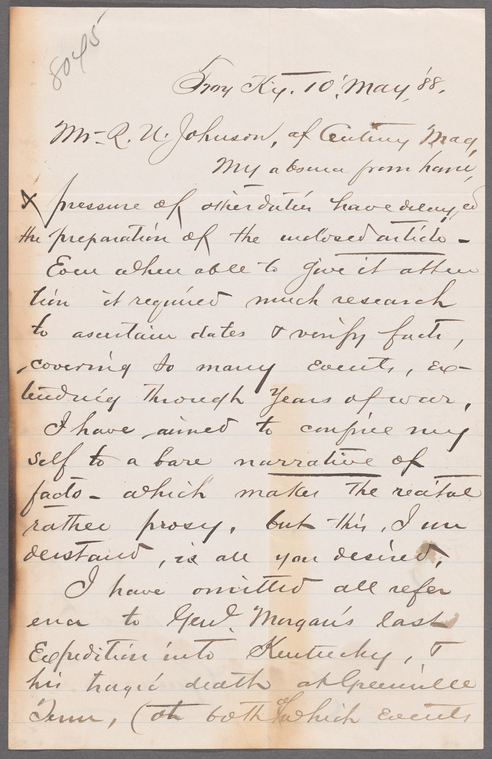 8045
Troy Ky. 10' May, '88.
Mr. R. U. Johnson, of Century Mag,
My absence from home,
& pressure of other duties have delayed
the preparation of the enclosed article -
Even when able to give it atten
tion it required much research
to ascertain dates & verify facts,
covering so many events, ex-
tending through years of war.
I have aimed to confine my
self to a bare narrative of
facts - which makes the recital
rather prosy, but this, I un
derstand, is all you desired.
I have omitted all refer
ence to Genl. Morgan's last
Expedition into Kentucky, &
his tragic death at Greenville
Tenn, (both of which events